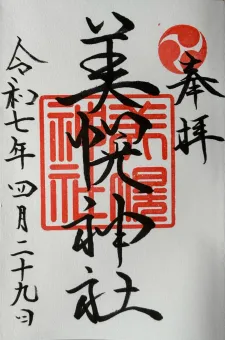 奉拝
美幌神社
美幌
神社
令和七年四月二十九日